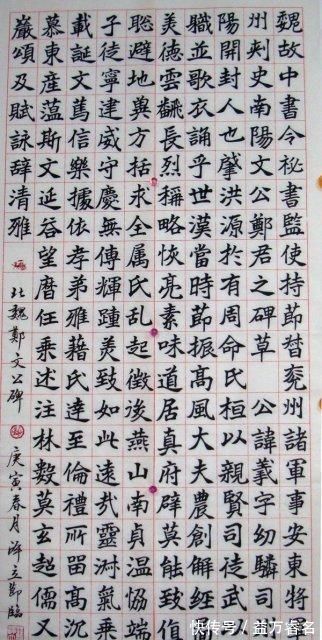 魏故中書令祕書監使持節督兗州諸軍事安東將
州刺史南陽文公鄭君之碑草 公諱羲字幼驎司
陽開封人也肇洪源於有周命氏桓以親賢司徒武
職並歌衣誦乎世漢當時節振高風大夫農創解經
美德雲飜長烈稱略恢亮素味道居真府辟莫能致值
聡避地輿方括求全属氏乱起徵後燕山南貞温恊端
子徒寧建威守慶無傅輝踵美致如此遠哉靈淋氣乗
載誕文篤信樂據依孝弟雅藉氏達至倫禮所留高沉
慕東産薀斯文延谷望暦任乗述注林數莫玄超儒又
巖頌及賦詠辞清雅
北魏鄭文公碑
庚寅春月 立節臨
快传号/益万睿名